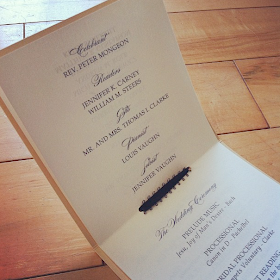 Celebrant
REV. PETER MONGEON
Readers
JENNIFER K. CARNEY
WILLIAM M. STEERS
Gifts
MR. AND MRS. THOMAS L. CLARKE
Pianist
LOUIS VAUGHN
Soloist
JENNIFER VAUGHN
The Wedding Ceremony
PRELUDE MUSIC
Jesu, Joy of Man's Desire - Bach
PROCESSIONAL
Canon in D - Pachelbel
BRIDAL PROCESSIONAL
Trumpet Voluntary - Clarke